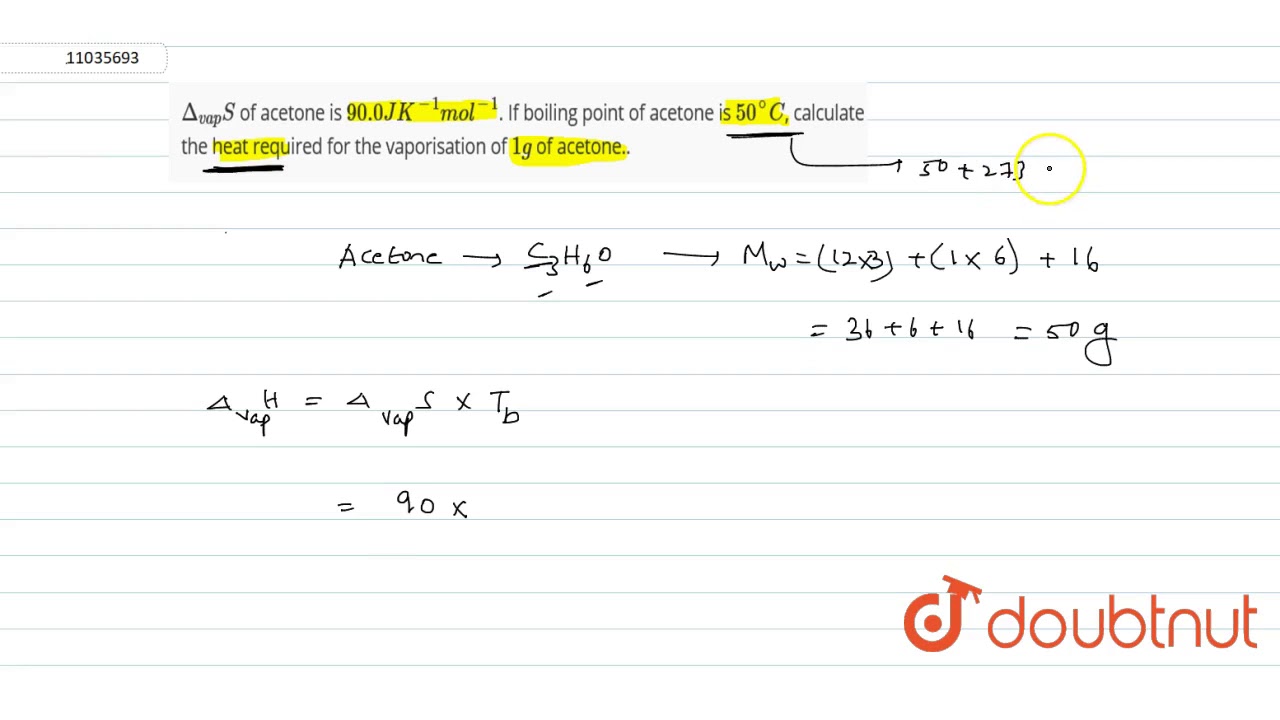 11035693
Δ_vap S of acetone is 90.0JK⁻¹mol⁻¹. If boiling point of acetone is 50°C, calculate
the heat required for the vaporisation of 1g of acetone..
50 + 273
Acetone → C₃H₆O → Mw = (12×3) + (1×6) + 16
= 36 + 6 + 16 = 50 g
Δ_vap H = Δ_vap S × T_b
= 90 ×
doubtnut